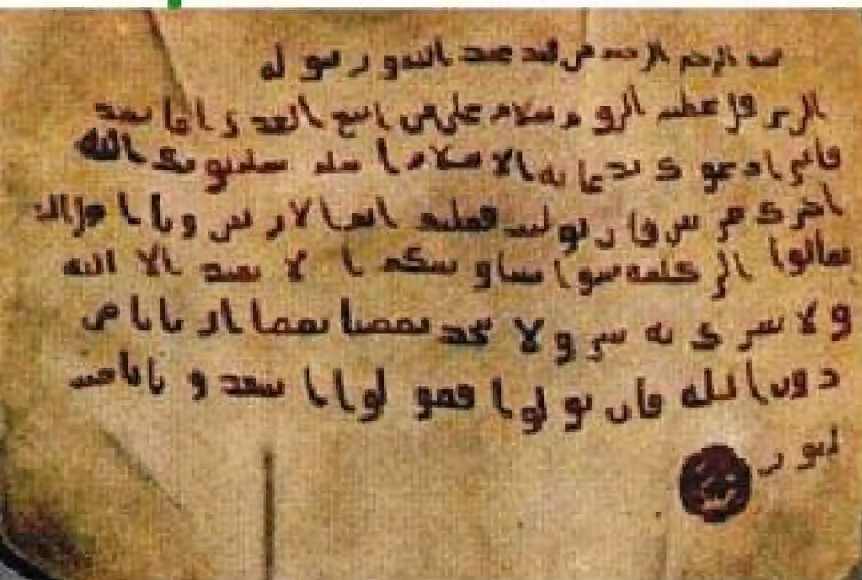 الرحمن الرحيم من محمد عبد الله و رسو له
عظيم الرو م سلام على من اتبع الهد ى اما بعد
فانى ادعو ك بدعا ية الا سلام ا سلم تسلم يو تك الله
اجر ك مر تين فا ن تو ليت فعليك اثم الار يس و يا ا
تعالوا الى كلمة سوا ا لا نعبد الا الله
و لا نشر ك به شى و لا يتخذ بعضنا بعضا ار با با من
دون الله فان تو لو ا فقو لو ا ا شهد و ا با نا مسـ
لمو ن